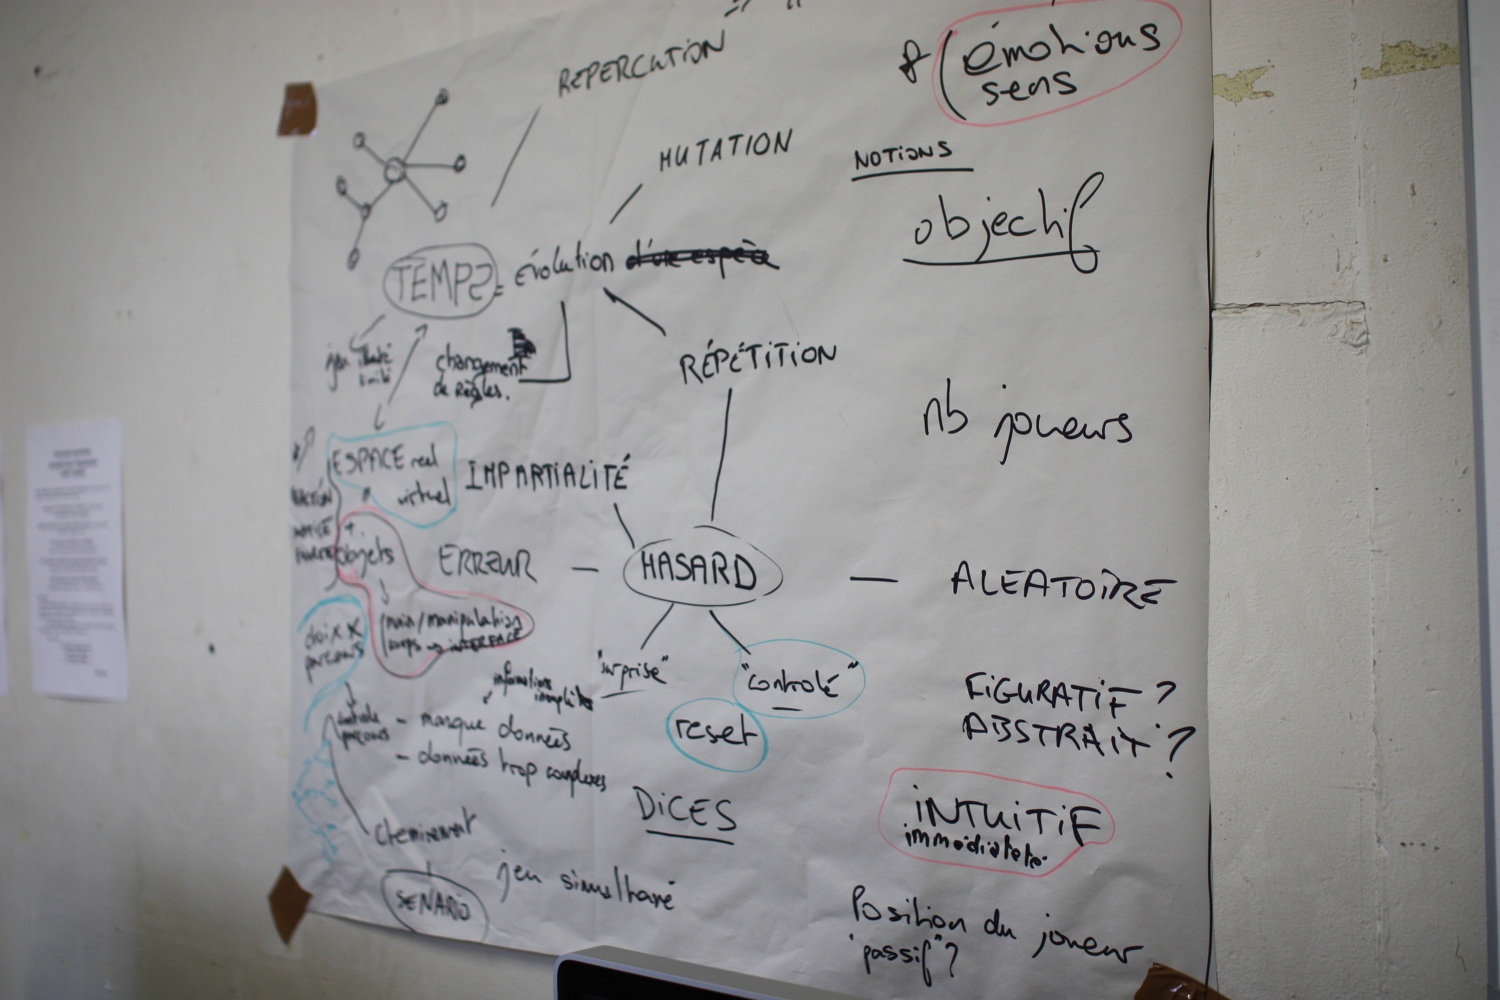 REPERCUTION
& (émotions
sens
MUTATION
NOTIONS
objectif
TEMPS = évolution d'une espèce
jeu illimité
limité
changement
de Règles.
RÉPÉTITION
nb joueurs
ESPACE réel
virtuel
IMPARTIALITÉ
objets
ERREUR
HASARD
ALEATOIRE
main/manipulation
corps INTERFACE
choix
parcours
"surprise"
"controlé"
informations
incomplètes
reset
FIGURATIF ?
ABSTRAIT ?
- masque données
- données trop complexes
DiCES
iNTUiTiF
immédiateté
cheminement
jeu simultané
SENARIO
Position du joueur
"passif" ?